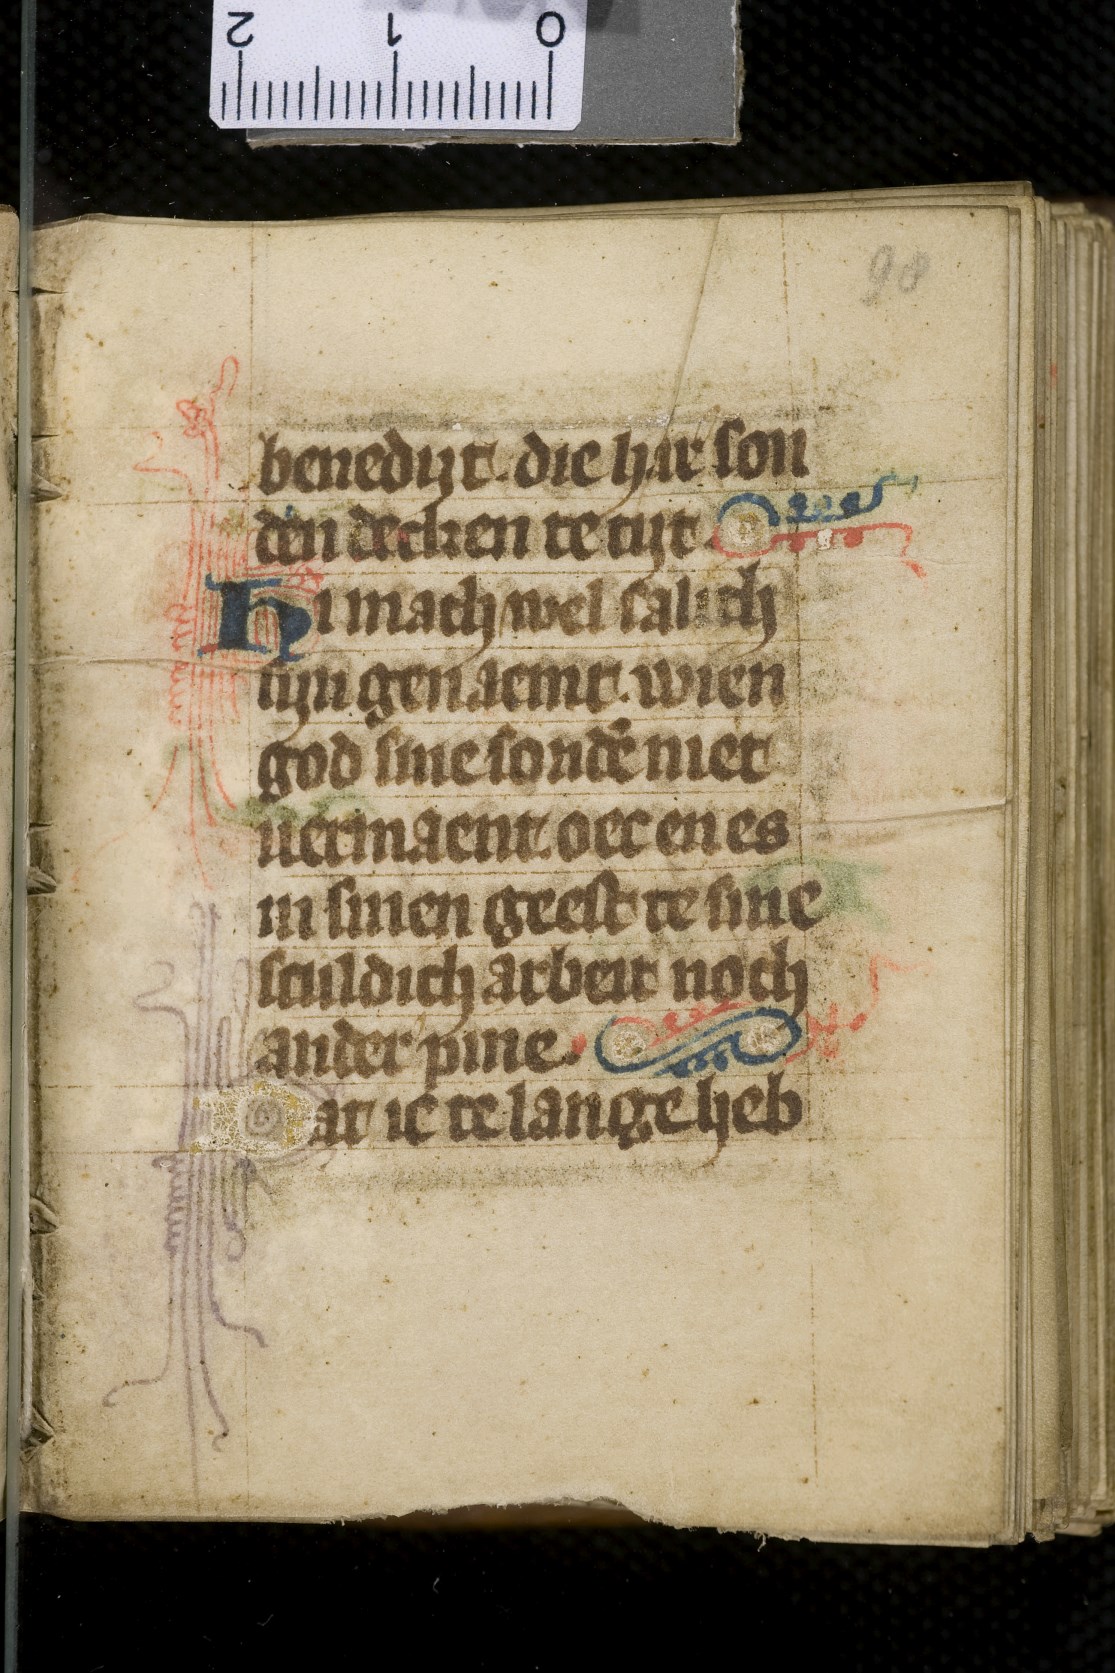 2 1 0
98
benedijt. die har son
den decken te tijt
Hi mach wel salich
sijn genaemt. wien
god sine sondē niet
uermaent. oec en es
in sinen geest te sine
sculdich arbeit noch
ander pine.
at ic te lange heb